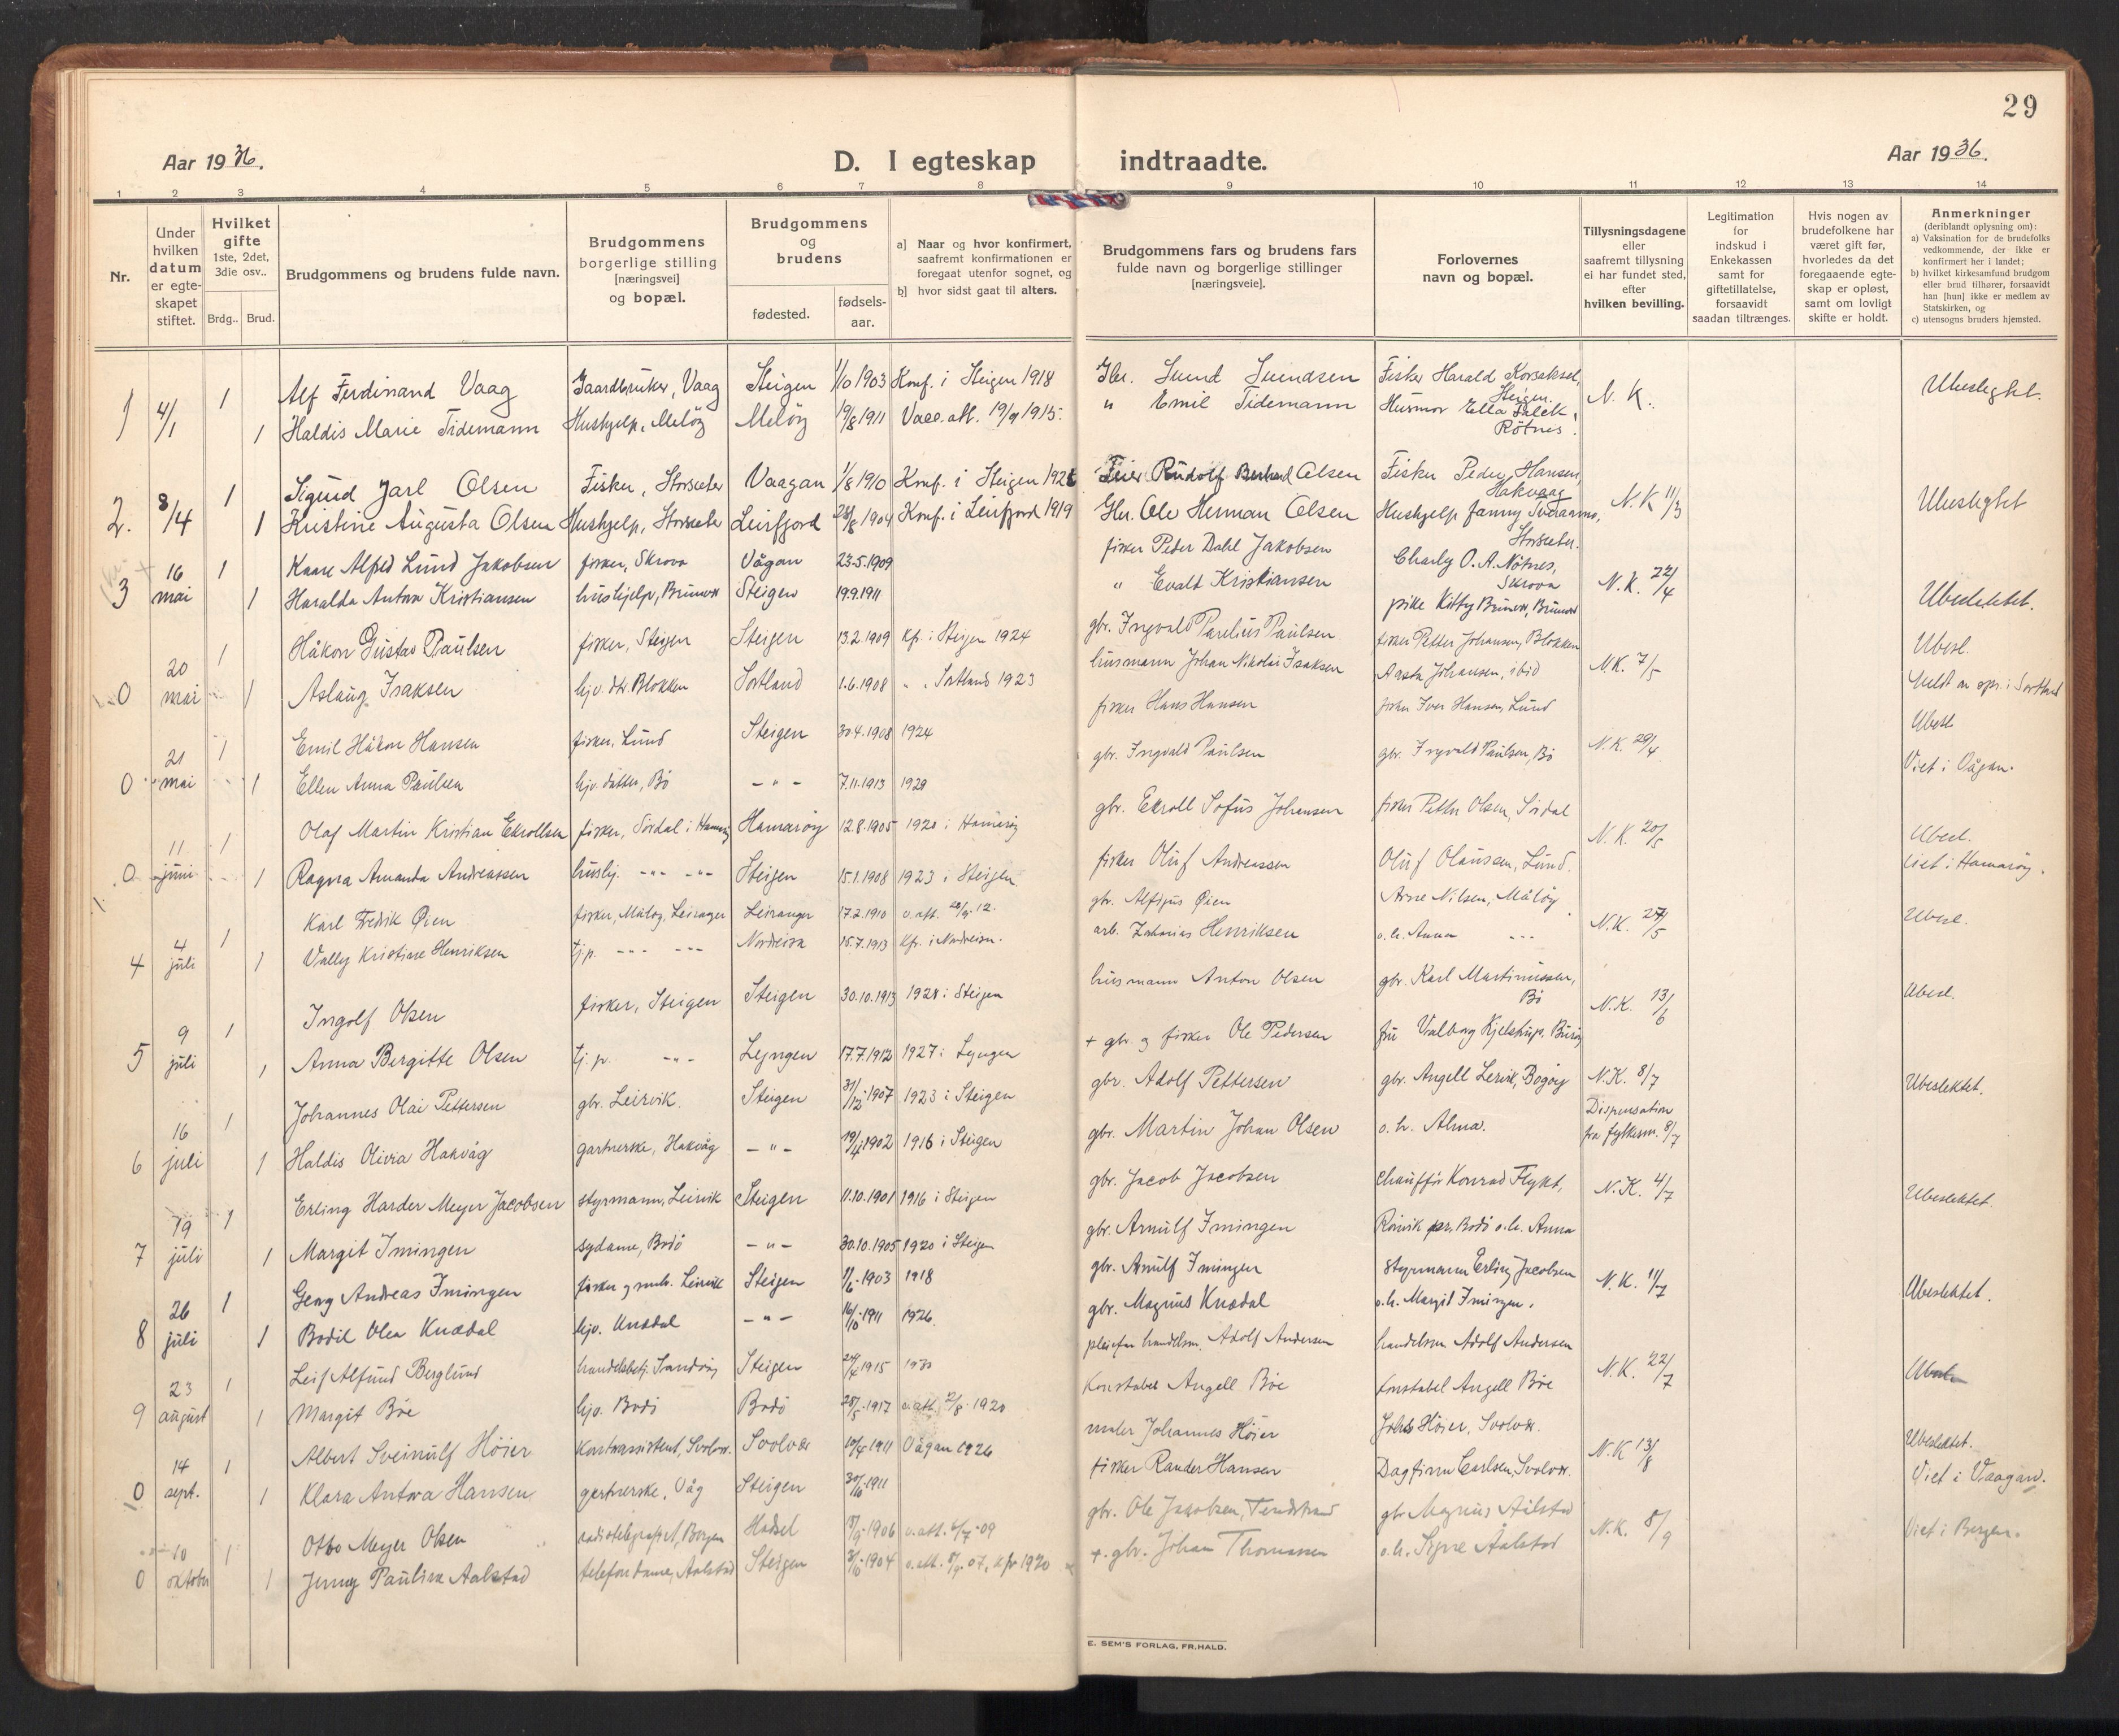 29
Aar 1936.
D. I egteskap indtraadte.
Aar 1936.
1 2 3 4 5 6 7 8 9 10 11 12 13 14
Nr.
Under hvilken datum er egte-skapet stiftet.
Hvilket gifte 1ste, 2det, 3die osv..
Brdg.. Brud.
Brudgommens og brudens fulde navn.
Brudgommens borgerlige stilling [næringsvei] og bopæl.
Brudgommens og brudens
fødested.
fødsels-aar.
a] Naar og hvor konfirmert, saafremt konfirmationen er foregaat utenfor sognet, og
b] hvor sidst gaat til alters.
Brudgommens fars og brudens fars fulde navn og borgerlige stillinger [næringsveie].
Forlovernes navn og bopæl.
Tillysningsdagene eller saafremt tillysning ei har fundet sted, efter hvilken bevilling.
Legitimation for indskud i Enkekassen samt for giftetillatelse, forsaavidt saadan tiltrænges.
Hvis nogen av brudefolkene har været gift før, hvorledes da det foregaaende egte-skap er opløst, samt om lovligt skifte er holdt.
Anmerkninger (deriblandt oplysning om):
a) Vaksination for de brudefolks vedkommende, der ikke er konfirmert her i landet;
b) hvilket kirkesamfund brudgom eller brud tilhører, forsaavidt han [hun] ikke er medlem av Statskirken, og
c) utensogns bruders hjemsted.
1 4/1 1 Alf Ferdinand Vaag Gaardbruker, Vaag Steigen 1/10 1903 Konf. i Steigen 1918 Gbr. Svend Svendsen Fisker Harald Korsaksel, Steigen. N. K. Ubeslegtet.
1 Haldis Marie Tidemann Hushjelp, Meløy Meløy 19/8 1911 Vacc. att. 19/9 1915. " Emil Tidemann Husmor Ella Falck, Røtnes.
2. 3/4 1 Sigurd Jarl Olsen Fisker, Storsæter Vaagan 1/8 1910 Konf. i Steigen Feier Rudolf Olsen Fisker Peder Hansen, Hakvaag N.K 11/3 Ubeslegtet
1 Kristine Augusta Olsen Hushjelp, Storsæter Leirfjord 1904 Konf. i Leirfjord 1919 Gbr. Ole Herman Olsen Hushjelp Fanny Storsæter.
3 16 mai 1 Kaare Alfred Lund Jakobsen fisker, Skrova Vågan 23.5.1909 fisker Peder Dahl Jakobsen Charly O. A. Nøtnes, Skrova N.K. 22/4 Ubeslektet.
1 Haralda Antora Kristiansen hushjelp, Brunvær Steigen 19.9.1911 " Evald Kristiansen pike Kitty Brunvær, Brunvær
20 mai 1 Håkon Gustav Paulsen fisker, Steigen Steigen 13.2.1909 kf. i Steigen 1924 gbr. Ingvald Parelius Paulsen fisker Petter Johansen, Blokken N.K. 7/5 Ubesl.
0 1 Aslaug Isaksen hjv. dtr. Blokken Sortland 1.6.1908 " " Sortland 1923 husmann Johan Nikolai Isaksen Aasta Johansen, ibid
21 mai 1 Emil Håkon Hansen fisker, Lund Steigen 30.4.1908 1924 fisker Hans Hansen fisker Iver Hansen, Lund N.K. 29/4 Ubesl
0 1 Ellen Anna Paulsen hjv. datter, Bø - " - 7.11.1913 1929 gbr. Ingvald Paulsen gbr. Ingvald Paulsen, Bø Viet i Vågan.
11 juni 1 Olaf Martin Kristian Ekrollsen fisker, Sørdal i Hamarøy Hamarøy 12.8.1905 1920 i Hamarøy gbr. Ekroll Sofus Johansen fisker Petter Olsen, Sørdal N.K. 20/5 Ubesl.
0 1 Ragna Amanda Andreassen hushj. -"- -"- Steigen 15.1.1908 1923 i Steigen. fisker Oluf Andreassen Oluf Olaussen, Lund. Viet i Hamarøy.
4 4 juli 1 Karl Fredrik Øien fisker, Måløy, Leiranger Leiranger 17.2.1910 v. att. 12. gbr. Alfegus Øien Arne Nilsen, Måløy N.K. 27/5 Ubesl.
1 Vally Kristine Henriksen tj.p. --- --- Nordreisa 15.7.1913 Kf. i Nordreisa. arb. Zakarias Henriksen o.h. Anna ---
5 9 juli 1 Ingolf Olsen fisker, Steigen Steigen 30.10.1913 1928 i Steigen husmann Anton Olsen gbr. Karl Martinussen, Bø N.K. 13/6 Ubesl.
1 Anna Bergitte Olsen tj.p. -"- Lyngen 17.7.1912 1927 i Lyngen + gbr. og fisker Ole Pedersen fru Valborg Kjelstrup,
6 16 juli 1 Johannes Olai Pettersen gbr. Leirvik. Steigen 31/12 1907 1923 i Steigen gbr. Adolf Pettersen gbr. Angell Lervik, Bogøy N.K. 8/7 Dispensation fra fylkesm. 8/7 Ubeslektet.
1 Haldis Olivia Hakvåg gartnerske, Hakvåg - " - 19/4 1902 1916 i Steigen gbr. Martin Johan Olsen o.h. Alma.
7 19 juli 1 Erling Harder Meyer Jacobsen styrmann, Leirvik Steigen 11.10.1901 1916 i Steigen gbr. Jacob Jacobsen Chauffør Konrad Flygt, N.K. 4/7 Ubeslektet.
1 Margit Imingen sydame, Bodø - " - 30.10.1905 1920 i Steigen gbr. Arnulf Imingen Røsvik pr. Bodø o.h. Anna
8 26 juli 1 Georg Andreas Imingen fisker g Leirvik Steigen 1/6 1903 1918 gbr. Arnulf Imingen Styrmann Erling Jacobsen N.K. 11/7 Ubeslektet.
1 Bodil Olea Knædal hjv. Knædal - " - 16/10 1911 1926. gbr. Magnus Knædal o.h. Margit Imingen.
9 23 august 1 Leif Alfund Berglund handelsbetj. Sandvåg Steigen 1915 pleiefar handelsm. Adolf Andersen handelsm Adolf Andersen N.K. 22/7
1 Margit Bøe hjv. Bodø Bodø 28/5 1917 v. att. 2/8 1920 Konstabel Angell Bøe Konstabel Angell Bøe
14 sept. 1 Albert Sveinulf Høier Kontorassistent, Svolvær. Svolvær 10/4 1911 Vågan 1926 maler Johannes Høier Johs Høier, Svolvær. N.K 13/8 Ubeslektet.
0 1 Klara Antora Hansen gartnerske, Våg Steigen 30/10 1911 fisker Rander Hansen Dagfinn Carlsen, Svolvær. Viet i Vaagan.
10 oktober 1 Otto Meyer Olsen radiotelegrafist, Bergen Hadsel 1906 v. att. 09 gbr. Ole Jakobsen, gbr Magnus Aalstad N.K. 8/9 Viet i Bergen.
0 1 Jenny Pauline Aalstad telefondame, Aalstad Steigen 1904 v. att. 07, kfr 1920 + gbr. Johan Thomassen o.h. Signe Aalstad
E. SEM'S FORLAG, FR.HALD.